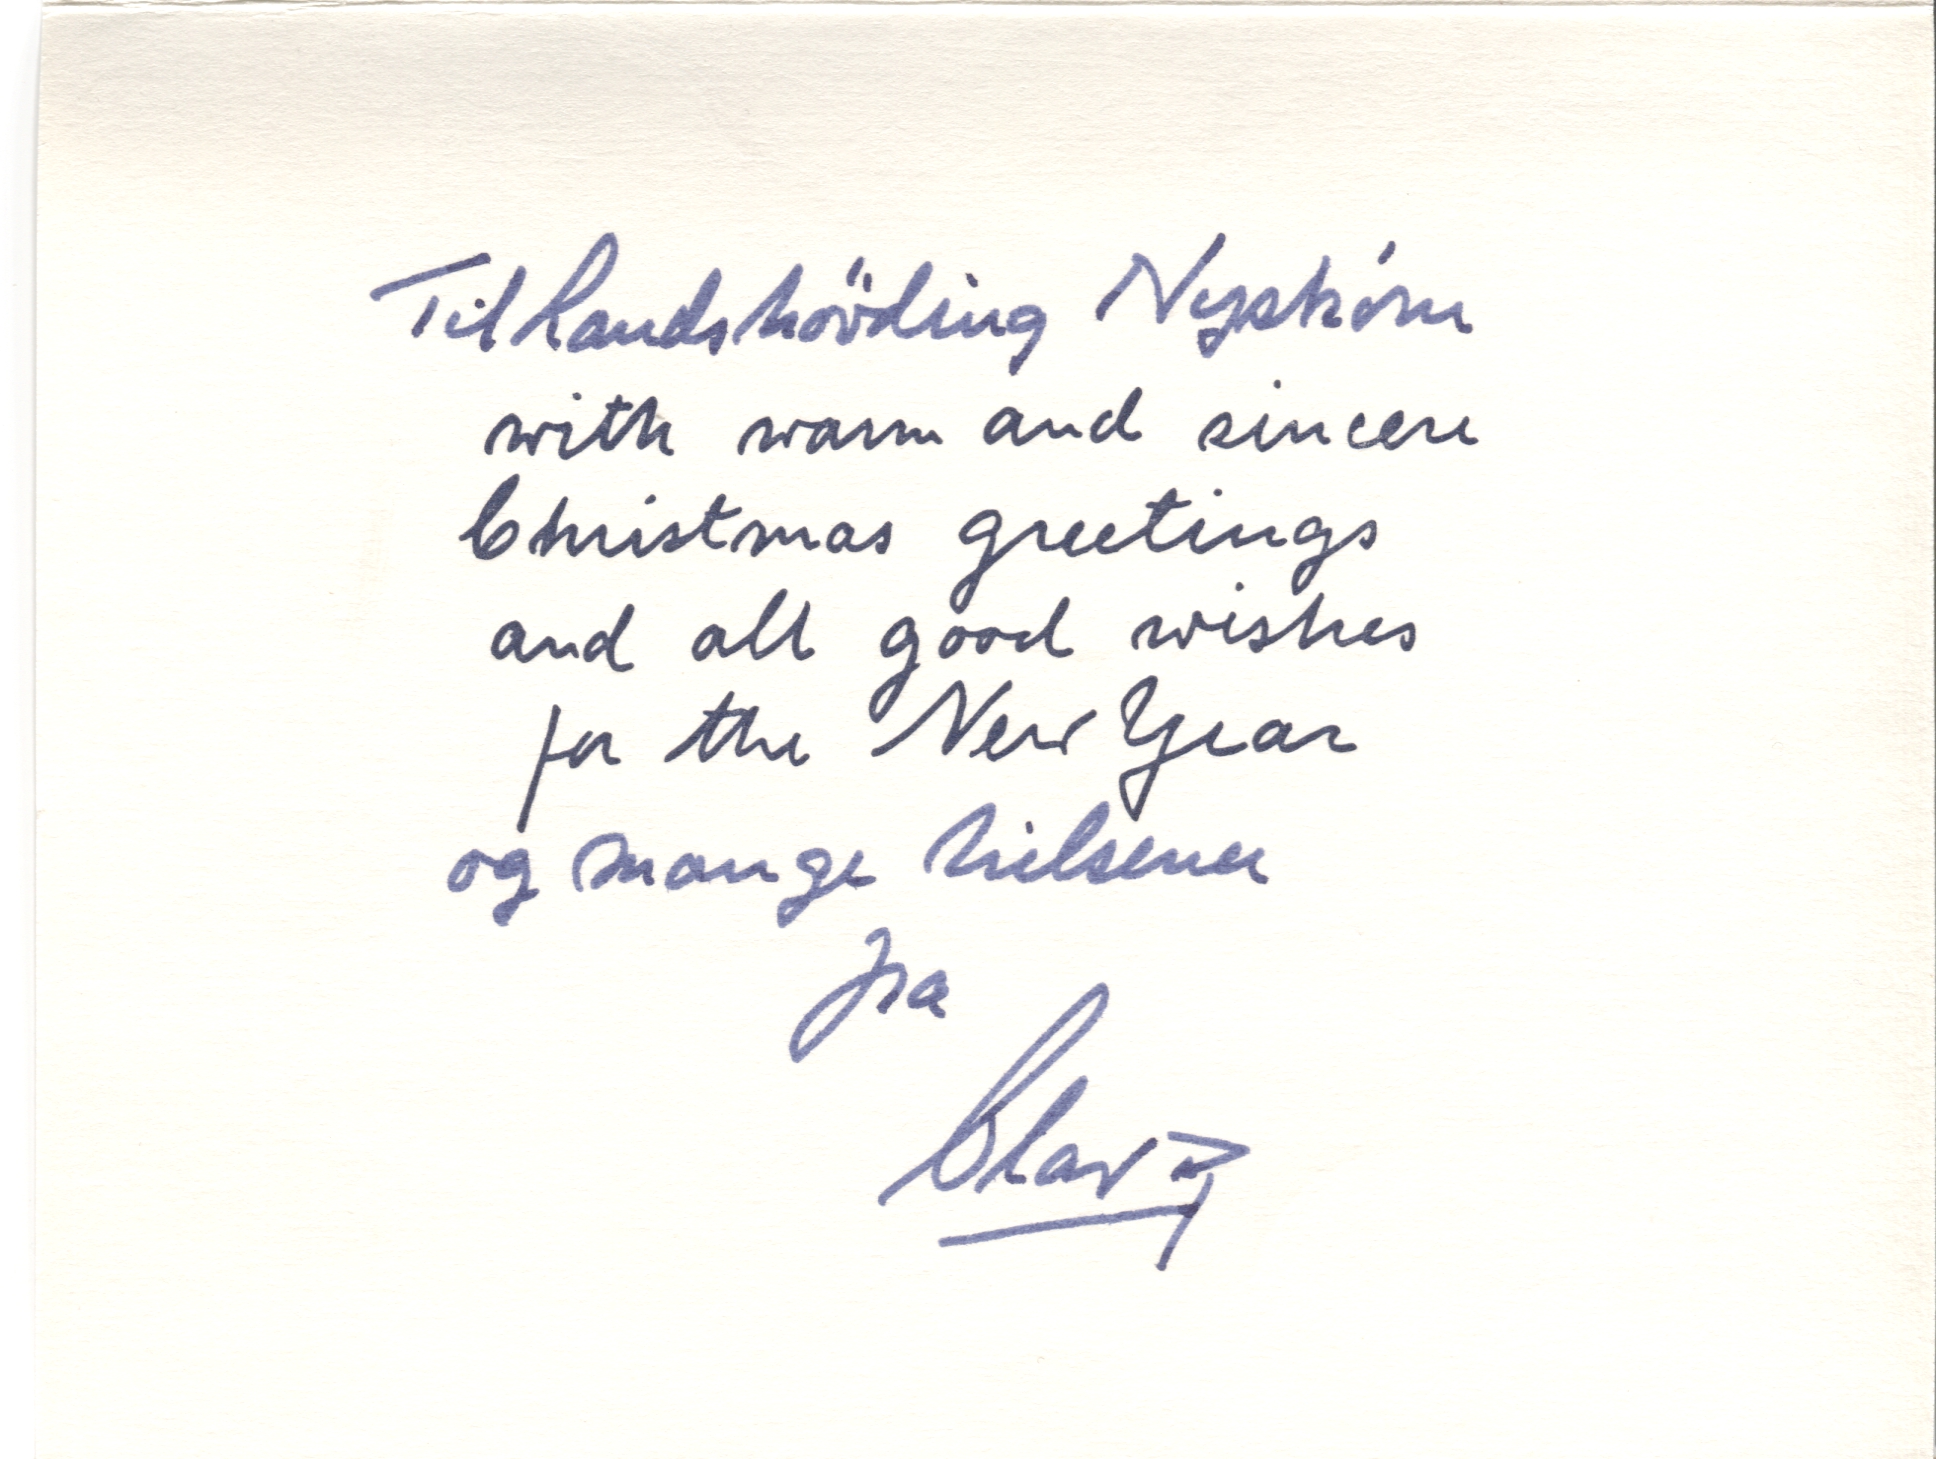 Til Landshövding Nyström
with warm and sincere
Christmas greetings
and all good wishes
for the New Year
og mange hilsener
fra